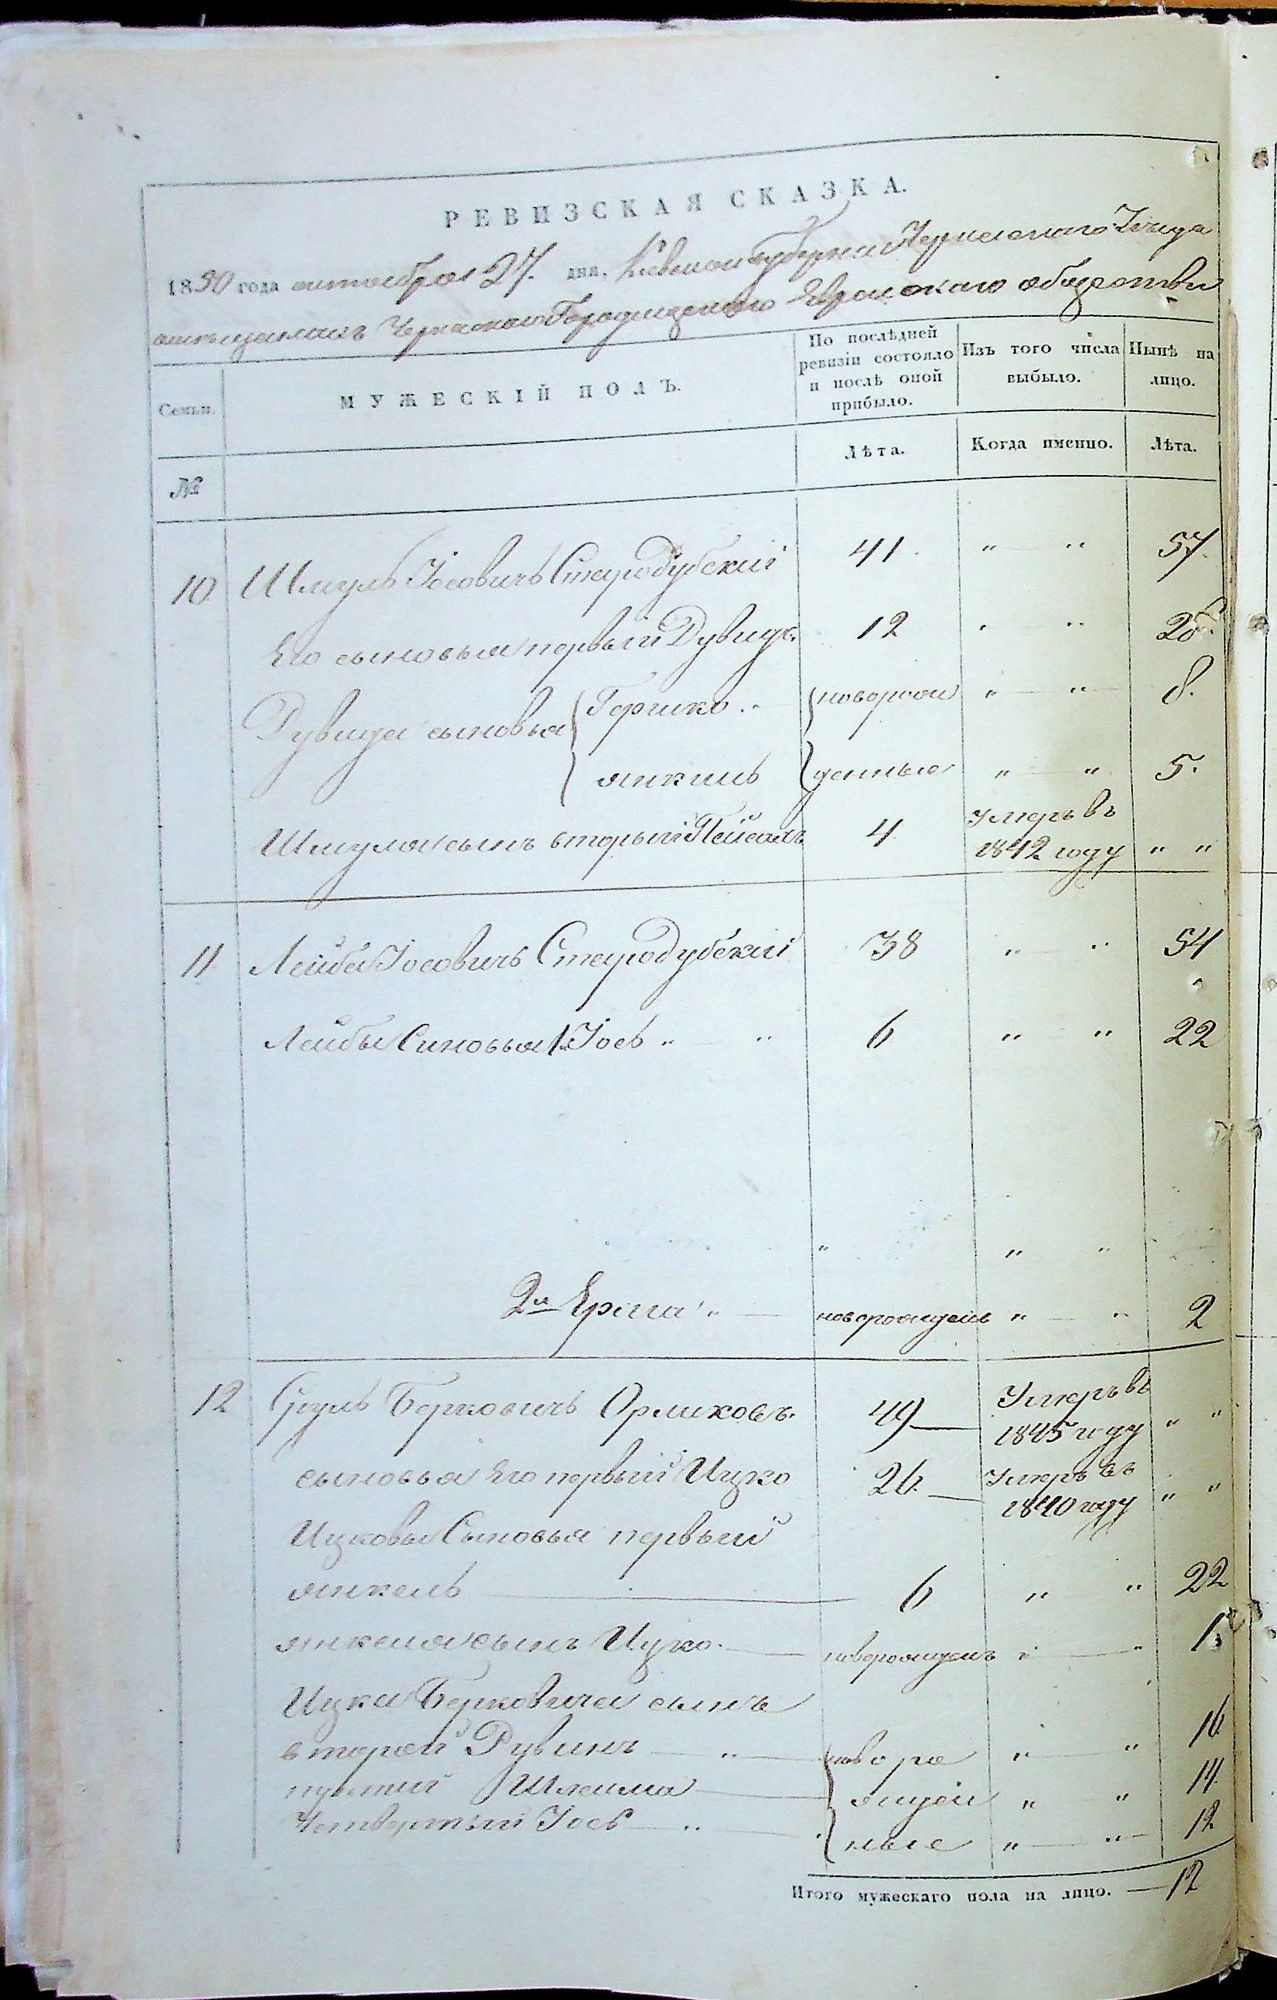 РЕВИЗСКАЯ СКАЗКА.
1850 года октября 27. дня. Киевской Губернии Черкаского Уезда
о мещанахъ Черкаского Городищенского Еврейскаго общества
Семьи.
МУЖЕСКІЙ ПОЛЪ.
По послѣдней ревизіи состояло и послѣ оной прибыло.
Изъ того числа выбыло.
Нынѣ на лицо.
№
Лѣта.
Когда именно.
Лѣта.
10 Шмуль Іосовичъ Стародубскій 41. " " 57.
Его сыновья первый Дувидъ 12 " " 28.
Дувида сыновья { Гершко " { новорож " " 8.
янкель { денные " " 5.
Шмуля сынъ вторый Пейсахъ 4 Умеръ въ 1842 году " "
11 Лейба Іосовичъ Стародубскій 38 " " 54
Лейбы Синовья 1. Іось " " 6 " " 22
" " "
2й Ерма " новорожденъ " " 2
12 Сруль Берковичъ Орликовъ. 49 Умеръ въ 1845 году " "
сыновья Его первый Ицко 26 Умеръ въ 1840 году " "
Ицковы Сыновья первый
янкель 6 " " 22
янкеля сынъ Ицко. новорожденъ " " 1
Ицка Берковича сынъ
второй Рувинъ " { новоро " " 16
третий Шлиома { жден " " 14
Четвертый Іось " { ные " " 12
Итого мужескаго пола на лицо. — 12